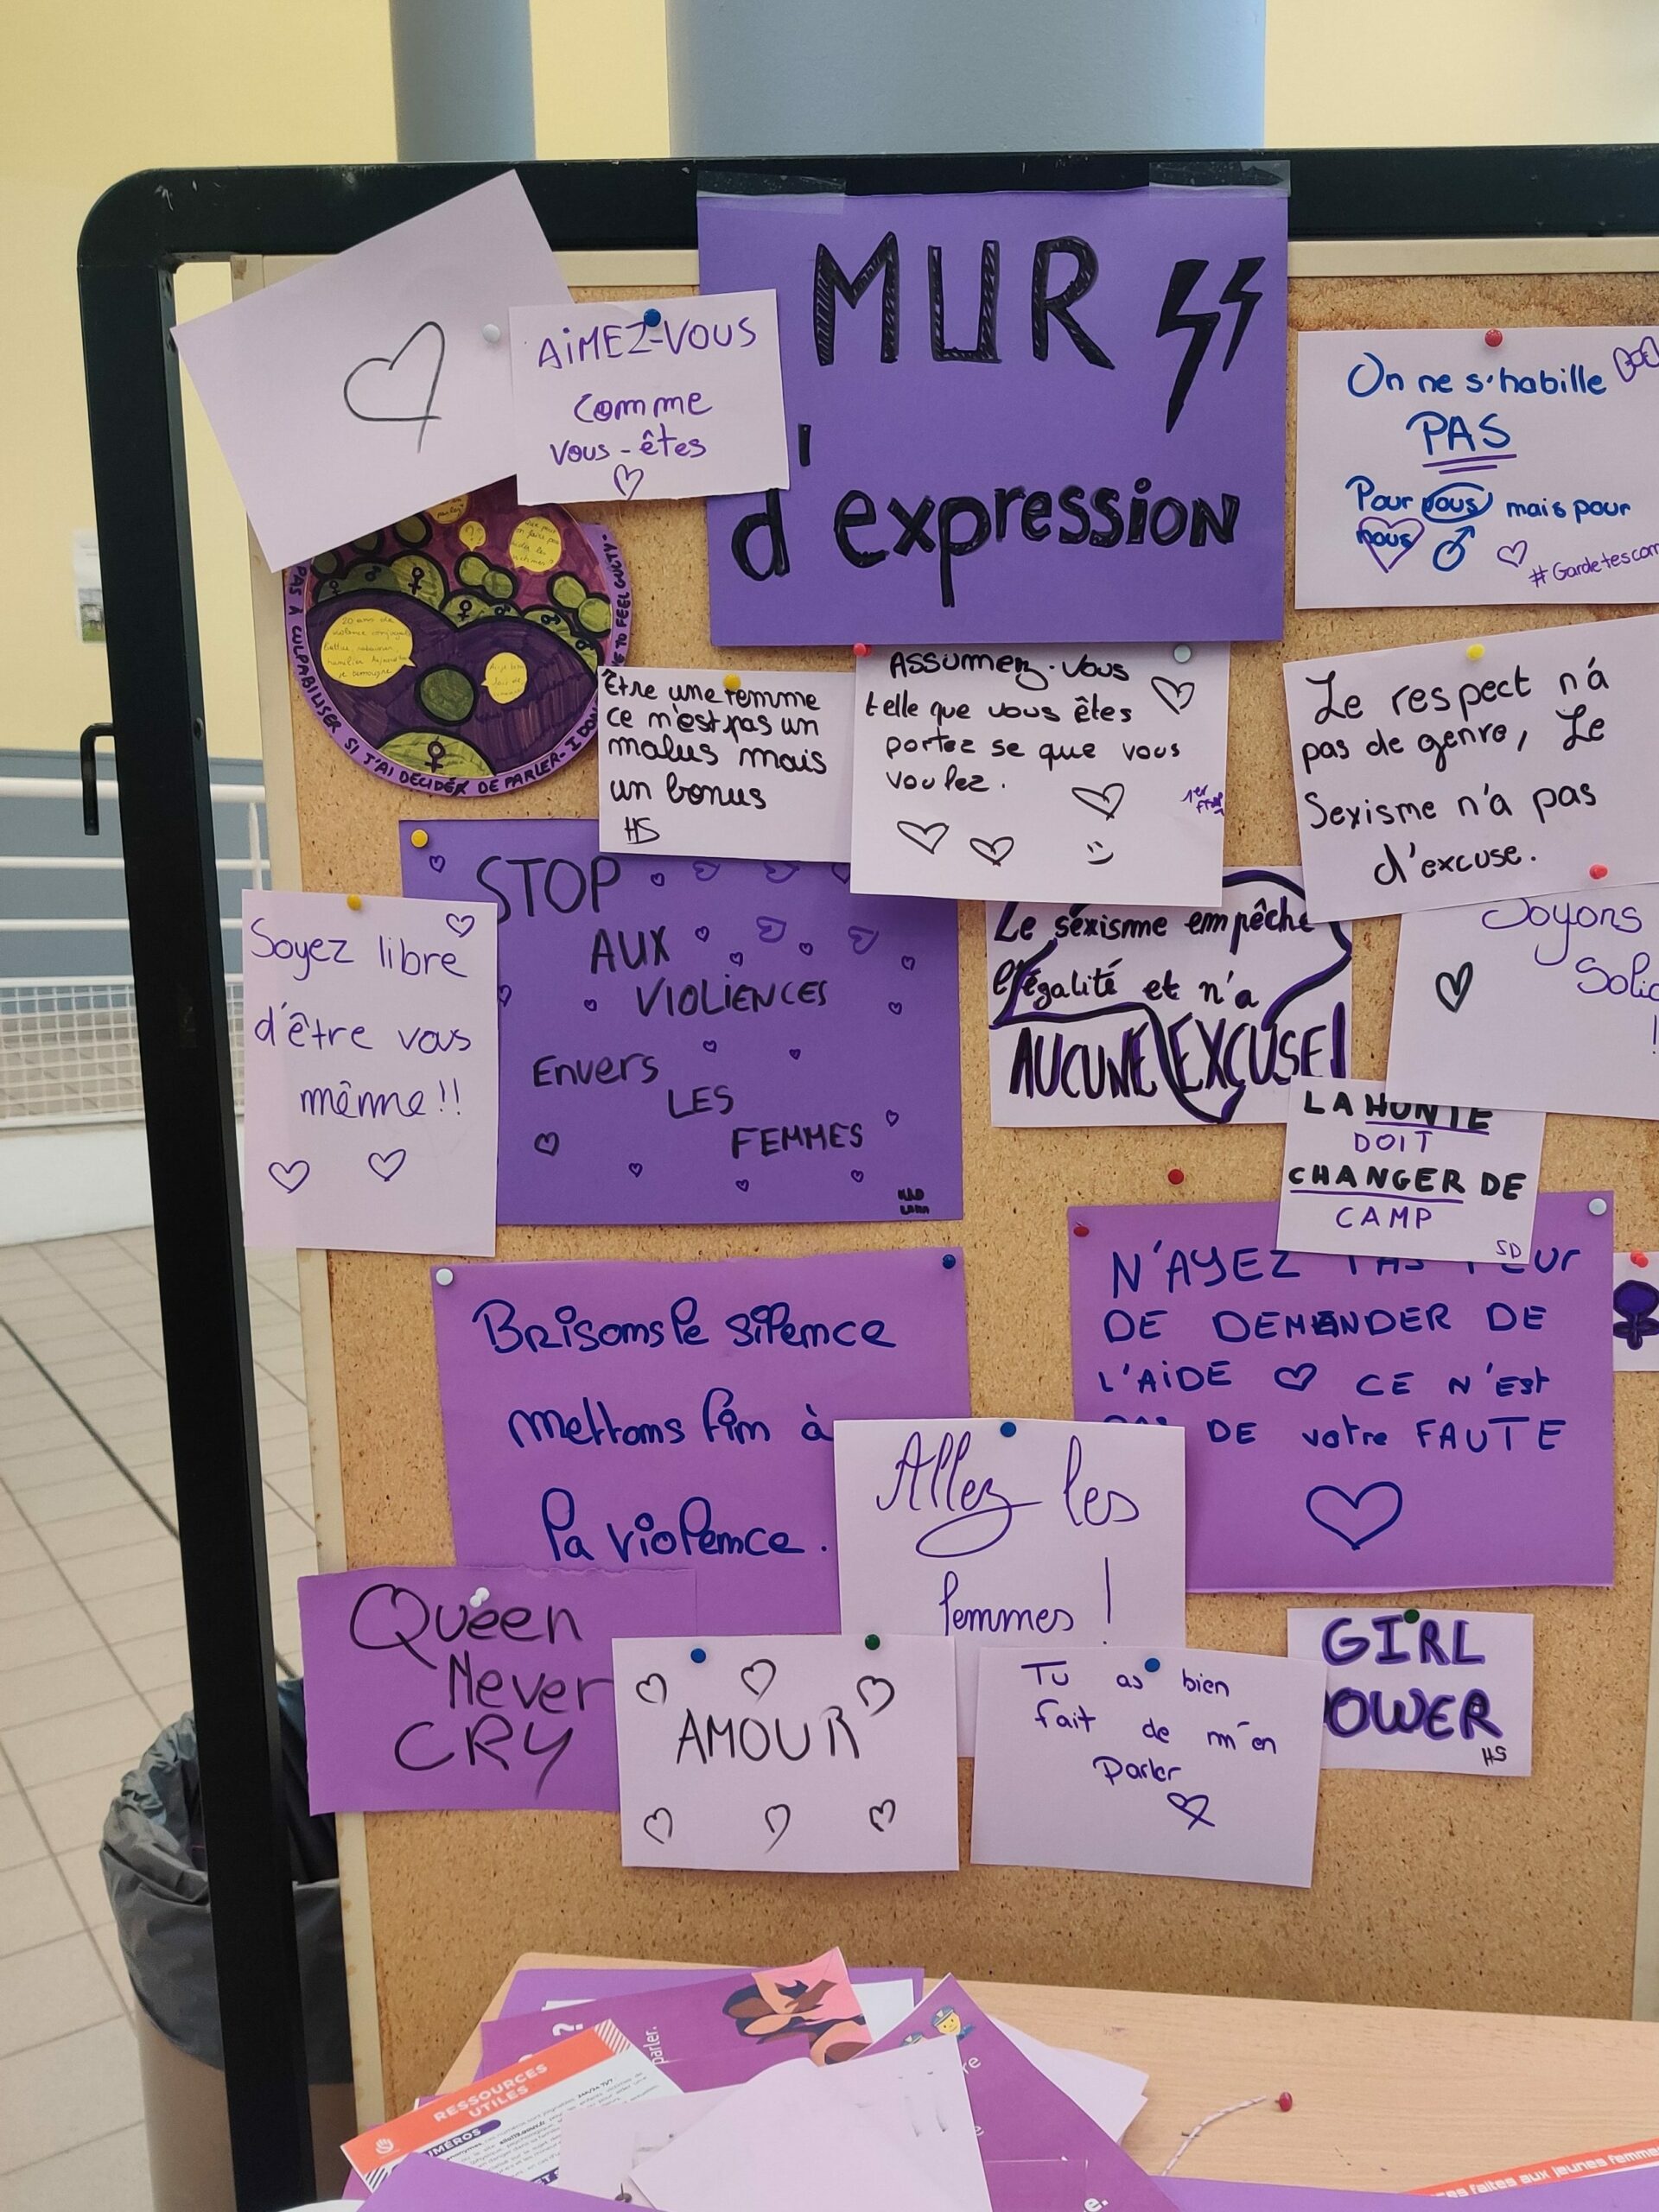 MUR
d'expression
AiMEZ-VOUS
comme
vous-êtes
On ne s'habille
PAS
Pour vous mais pour
nous
#Gardetescom
PAS À CULPABILISER SI J'AI DÉCIDÉR DE PARLER - I DON
E TO FEEL GUILTY-
20 ans de
violence
Être une femme
ce n'est pas un
malus mais
un bonus
HS
Assumez-vous
telle que vous êtes
portez se que vous
voulez.
1er
Le respect n'à
pas de genre, Le
Sexisme n'a pas
d'excuse.
STOP
AUX
VIOLIENCES
Envers
LES
FEMMES
Soyez libre
d'être vous
même!!
Le sexisme empêche
l'égalité et n'a
AUCUNE EXCUSE!
Soyons
Solid
!
LA HONTE
DOIT
CHANGER DE
CAMP
SD
N'AYEZ PAS PEUr
DE DEMANDER DE
L'AiDE CE N'Est
PAS DE votre FAUTE
Brisons le silence
mettons fin à
la violence.
Allez les
femmes !
Queen
Never
CRY
AMOUR
Tu as bien
fait de m'en
Parler
GIRL
POWER
HS
?
parler.
RESSOURCES
UTILES
NUMÉROS
re
e.
es faites aux jeunes femmes